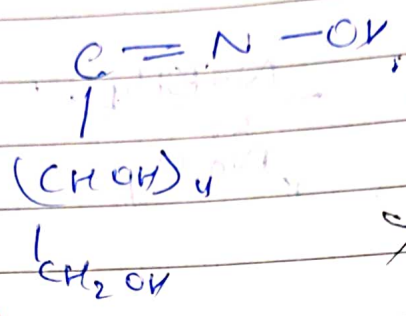 C = N - OH
|
(CHOH)4
|
CH2 OH